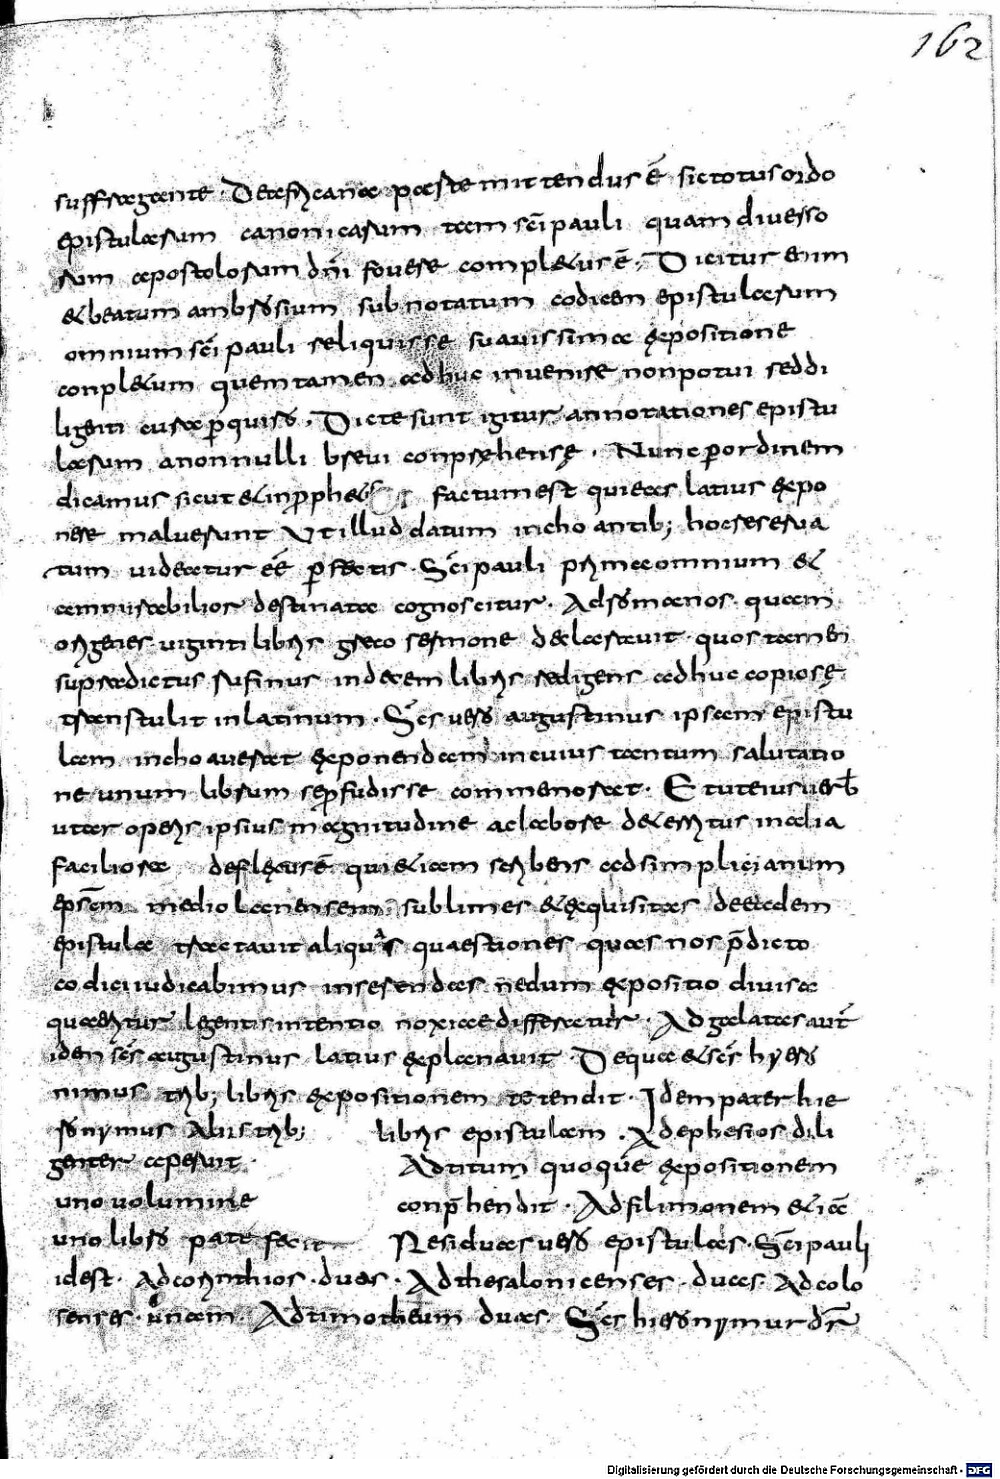 162
suffragante. De africana parte mittendus ē sic totus ordo
epistularum canonicarum tam sc̄i pauli quam diverso
rum apostolorum dn̄i fovere complexus ē. Dicitur enim
& beatum ambrosium subnotatum codicem epistularum
omnium sc̄i pauli reliquisse suavissima expositione
conpl&um quem tamen adhuc invenire non potui sed di
ligenti cura p̄quiro. Dicte sunt igitur annotationes epistu
larum a nonnulli brevi conpręhensę. Nunc p̄ ordinem
dicamus sicut & in prph&is factum est qui eas latius expo
nere maluerunt Ut illud datum inchoantib; hoc reserva
tum videatur eē p̄fectis. Sc̄i pauli prima omnium &
ammirabilior destinata cognoscitur. Ad romanos quam
origenes viginti libris greco sermone declaravit quos tamen
supradictus rufinus in decem libris redigens adhuc copiosę
transtulit in latinum. Sc̄s vero augustinus ipsam epistu
lam inchoaverat exponendam in cuius tantum salutatio
ne unum librum se p̄fudisse commenorat. Et ut eius verb̄
utar operis ipsius magnitudine ac labore deterritus in alia
faciliora deflexus ē qui & iam scribens ad simplicianum
epsc̄m mediolanensem sublimes & exquisitas de eadem
epistula tractavit aliquas quaestiones quas nos p̄dicto
codici iudicabimus inserendas nedum expositio divisa
quaeritur legentis intentio noxiae differatur. Ad galatas aut̄
idem sc̄s augustinus latius explanavit. De qua & sc̄s hyero
nimus trib; libris expositionem tetendit. Idem pater hie
ronymus Aliis trib; libris epistulam. Ad ephesios dili
genter aperuit. Ad titum quoque expositionem
uno volumine conp̄hendit. Ad filimonem & iā
uno libro patefecit Residuas vero epistulas. Sc̄i pauli
idest. Ad corinthios. duas. Ad thesalonicenses. duas Ad colo
senses. unam. Ad timotheum duas. Sc̄s hieronymur dr̄
Digitalisierung gefördert durch die Deutsche Forschungsgemeinschaft - DFG